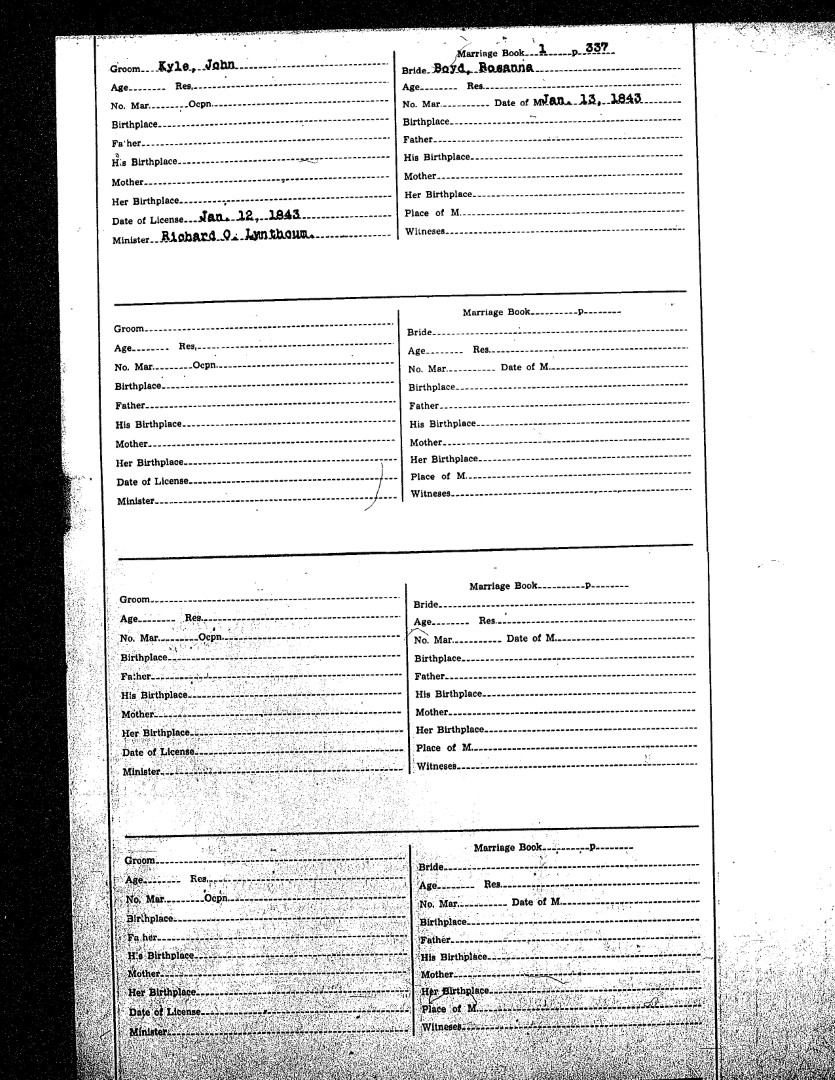 Marriage Book 1 p. 337
Groom Kyle, John
Bride Boyd, Rosanna
Age Res.
Age Res.
No. Mar. Ocpn.
No. Mar. Date of M. Jan. 13, 1843
Birthplace
Birthplace
Father
Father
His Birthplace
His Birthplace
Mother
Mother
Her Birthplace
Her Birthplace
Date of License Jan. 12, 1843
Place of M.
Minister Richard O. Lynthcum.
Witneses
Marriage Book p.
Groom
Bride
Age Res.
Age Res.
No. Mar. Ocpn.
No. Mar. Date of M.
Birthplace
Birthplace
Father
Father
His Birthplace
His Birthplace
Mother
Mother
Her Birthplace
Her Birthplace
Date of License
Place of M.
Minister
Witneses
Marriage Book p.
Groom
Bride
Age Res.
Age Res.
No. Mar. Ocpn.
No. Mar. Date of M.
Birthplace
Birthplace
Father
Father
His Birthplace
His Birthplace
Mother
Mother
Her Birthplace
Her Birthplace
Date of License
Place of M.
Minister
Witneses
Marriage Book p.
Groom
Bride
Age Res.
Age Res.
No. Mar. Ocpn.
No. Mar. Date of M.
Birthplace
Birthplace
Father
Father
His Birthplace
His Birthplace
Mother
Mother
Her Birthplace
Her Birthplace
Date of License
Place of M.
Minister
Witneses